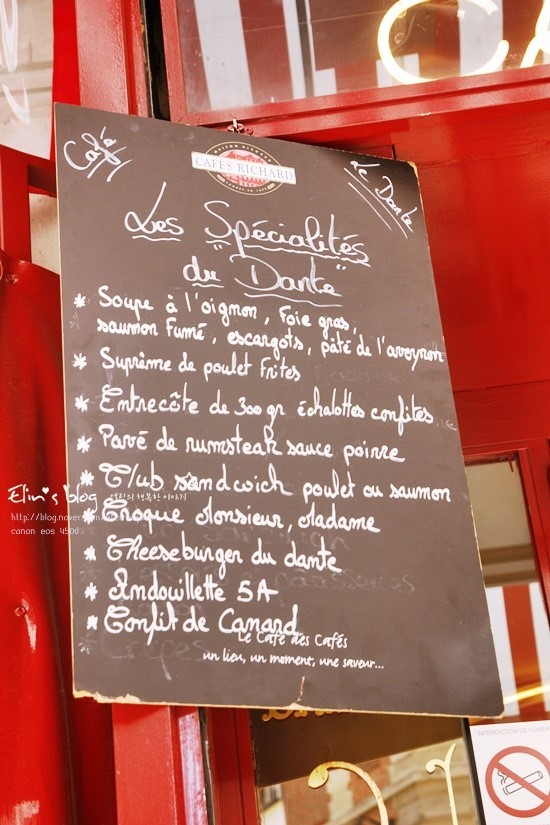 Café
MAISON RICHARD
CAFÉS RICHARD
Le Dante
Les Spécialités
du "Dante"
* Soupe à l'oignon, Foie gras,
saumon Fumé, escargots, pâté de l'aveyron
* Suprême de poulet Frites
* Entrecôte de 300gr échalottes confites
* Pavé de rumsteak sauce poivre
* Club sandwich poulet ou saumon
* Croque Monsieur, Madame
* Cheeseburger du dante
* Andouillette 5A
* Confit de Canard
* Crêpes
Le Café des Cafés
un lieu, un moment, une saveur...
Elin's blog
http://blog.naver
canon eos 450d
INTERDICTION DE FUMER